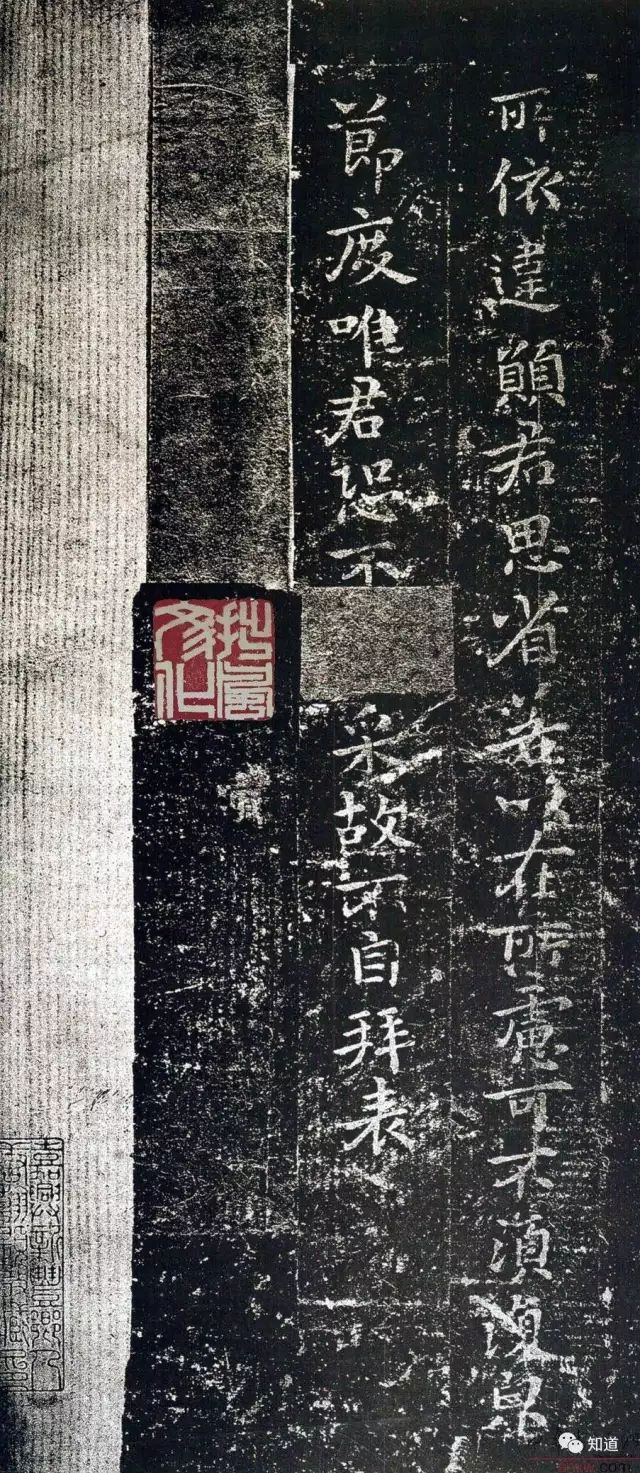 所依違願君思省若以在所慮可不須復皃
節度唯君恐不采故不自拜表
拙風文化
知道